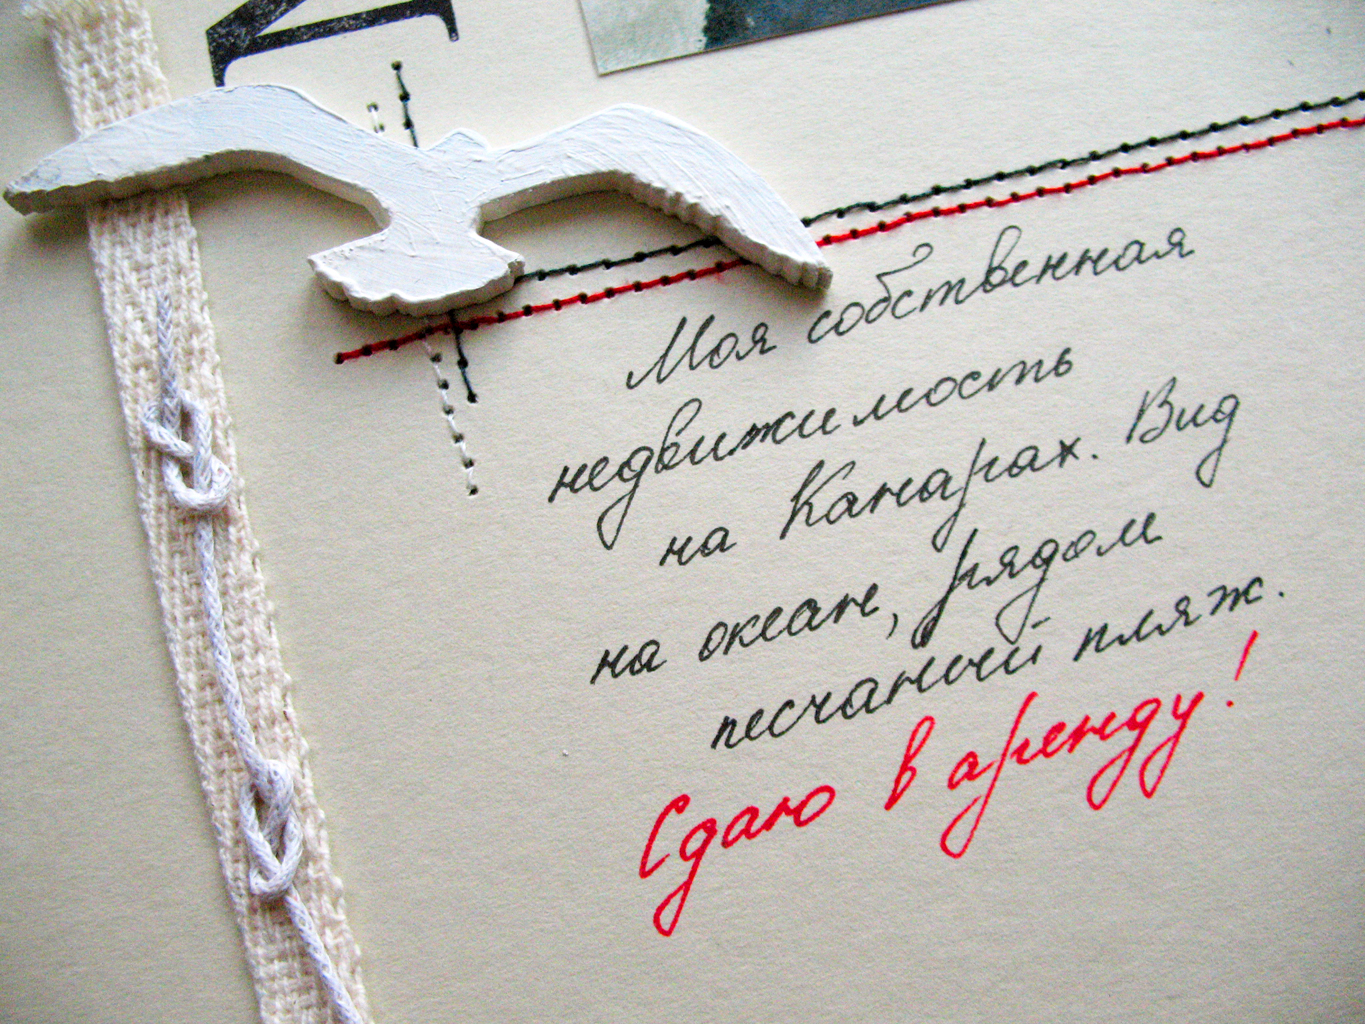 Моя собственная
недвижимость
на Канарах. Вид
на океан, рядом
песчаный пляж.
Сдаю в аренду!